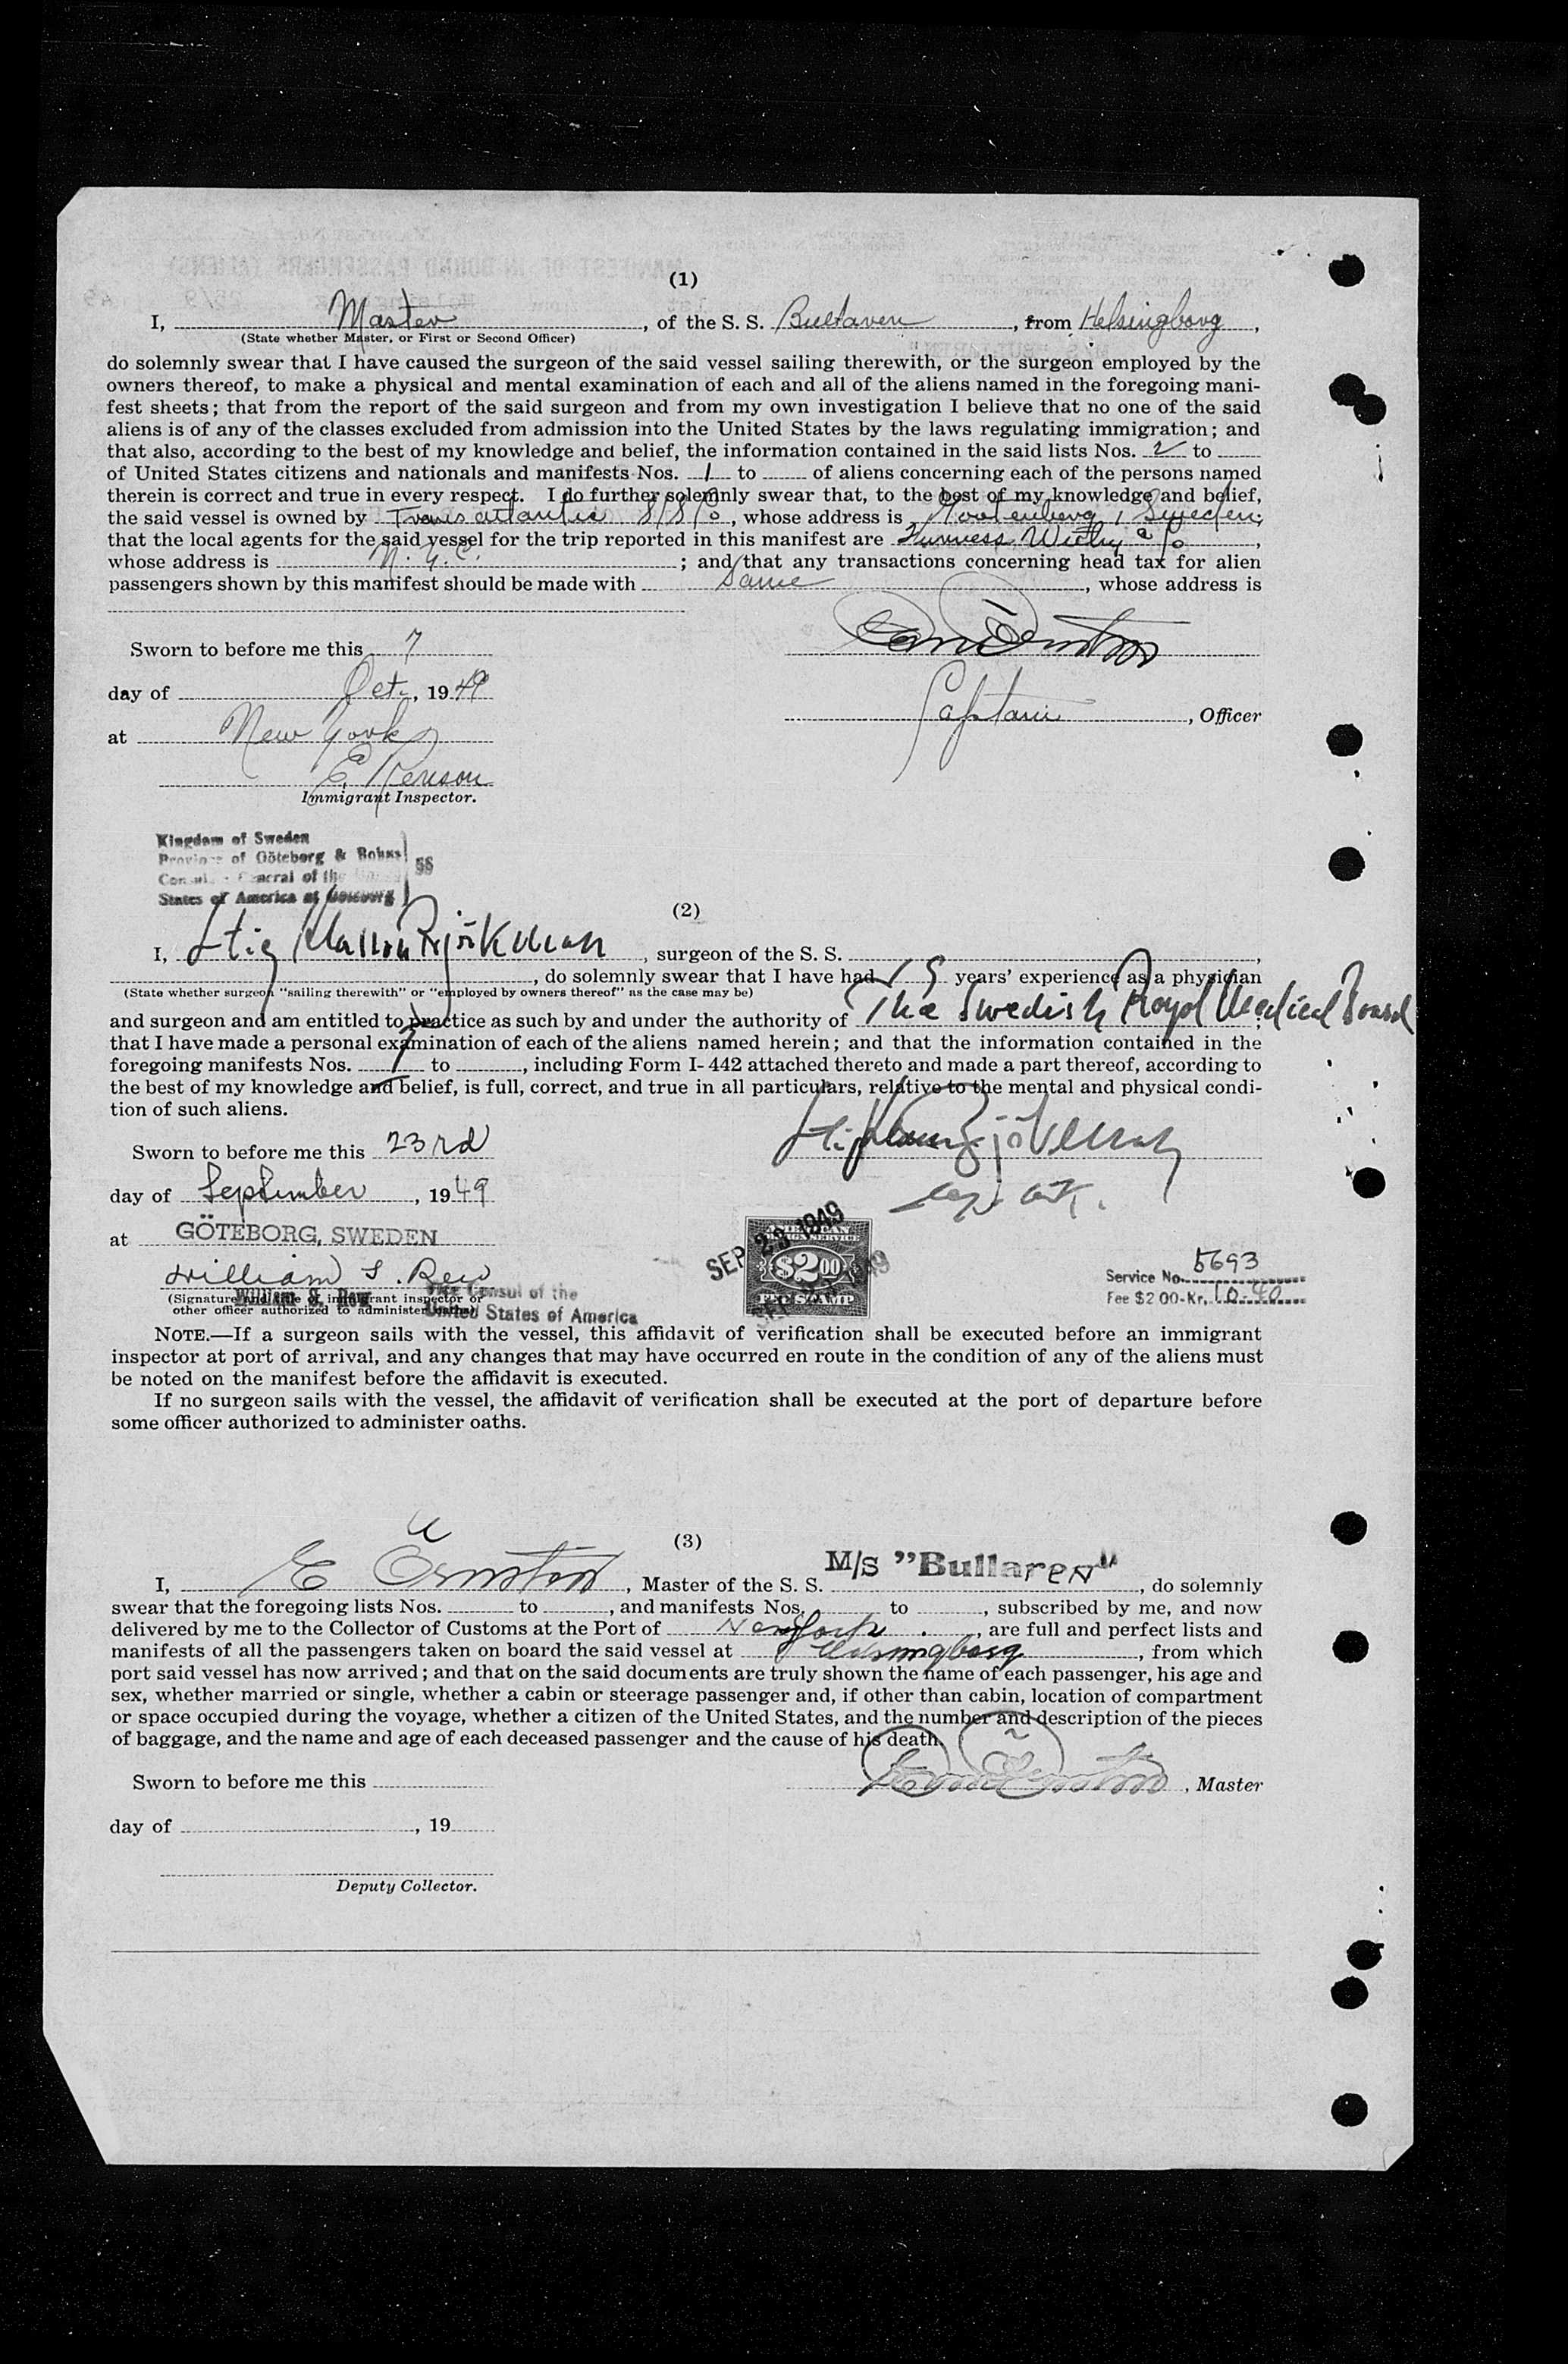 (1)
I, Master, of the S. S. Bullaren, from Helsingborg,
(State whether Master, or First or Second Officer)
do solemnly swear that I have caused the surgeon of the said vessel sailing therewith, or the surgeon employed by the
owners thereof, to make a physical and mental examination of each and all of the aliens named in the foregoing mani-
fest sheets; that from the report of the said surgeon and from my own investigation I believe that no one of the said
aliens is of any of the classes excluded from admission into the United States by the laws regulating immigration; and
that also, according to the best of my knowledge and belief, the information contained in the said lists Nos. 2 to
of United States citizens and nationals and manifests Nos. 1 to of aliens concerning each of the persons named
therein is correct and true in every respect. I do further solemnly swear that, to the best of my knowledge and belief,
the said vessel is owned by Transatlantic S/S Co, whose address is Gootenberg, Sweden;
that the local agents for the said vessel for the trip reported in this manifest are Furness Withy & Co,
whose address is N. Y. C.; and that any transactions concerning head tax for alien
passengers shown by this manifest should be made with Same, whose address is
Sworn to before me this 7
day of Oct., 1949
Captain, Officer
at New York
E. Kenson
Immigrant Inspector.
Kingdom of Sweden
Province of Göteborg & Bohus
Consulate General of the
States of America at Göteborg
SS
(2)
I, Stig Björkman, surgeon of the S. S.
, do solemnly swear that I have had 15 years' experience as a physician
(State whether surgeon "sailing therewith" or "employed by owners thereof" as the case may be)
and surgeon and am entitled to practice as such by and under the authority of The Swedish Royal Medical Board;
that I have made a personal examination of each of the aliens named herein; and that the information contained in the
foregoing manifests Nos. 1 to, including Form I-442 attached thereto and made a part thereof, according to
the best of my knowledge and belief, is full, correct, and true in all particulars, relative to the mental and physical condi-
tion of such aliens.
Stig Björkman
Sworn to before me this 23rd
day of September, 1949
at GÖTEBORG, SWEDEN
William S. Rew
William S. Rew
Vice Consul of the
United States of America
(Signature and title of immigrant inspector or
other officer authorized to administer oaths)
SEP 23 1949
AMERICAN
FOREIGN SERVICE
$2.00
FEE STAMP
Service No. 5693
Fee $2.00-Kr. 10.40
NOTE.—If a surgeon sails with the vessel, this affidavit of verification shall be executed before an immigrant
inspector at port of arrival, and any changes that may have occurred en route in the condition of any of the aliens must
be noted on the manifest before the affidavit is executed.
If no surgeon sails with the vessel, the affidavit of verification shall be executed at the port of departure before
some officer authorized to administer oaths.
(3)
I, E, Master of the S. S. M/S "Bullaren", do solemnly
swear that the foregoing lists Nos. to, and manifests Nos. to, subscribed by me, and now
delivered by me to the Collector of Customs at the Port of New York, are full and perfect lists and
manifests of all the passengers taken on board the said vessel at Helsingborg, from which
port said vessel has now arrived; and that on the said documents are truly shown the name of each passenger, his age and
sex, whether married or single, whether a cabin or steerage passenger and, if other than cabin, location of compartment
or space occupied during the voyage, whether a citizen of the United States, and the number and description of the pieces
of baggage, and the name and age of each deceased passenger and the cause of his death.
Sworn to before me this
, Master
day of, 19
Deputy Collector.